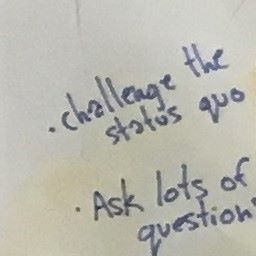 · challenge the
status quo
· Ask lots of
question